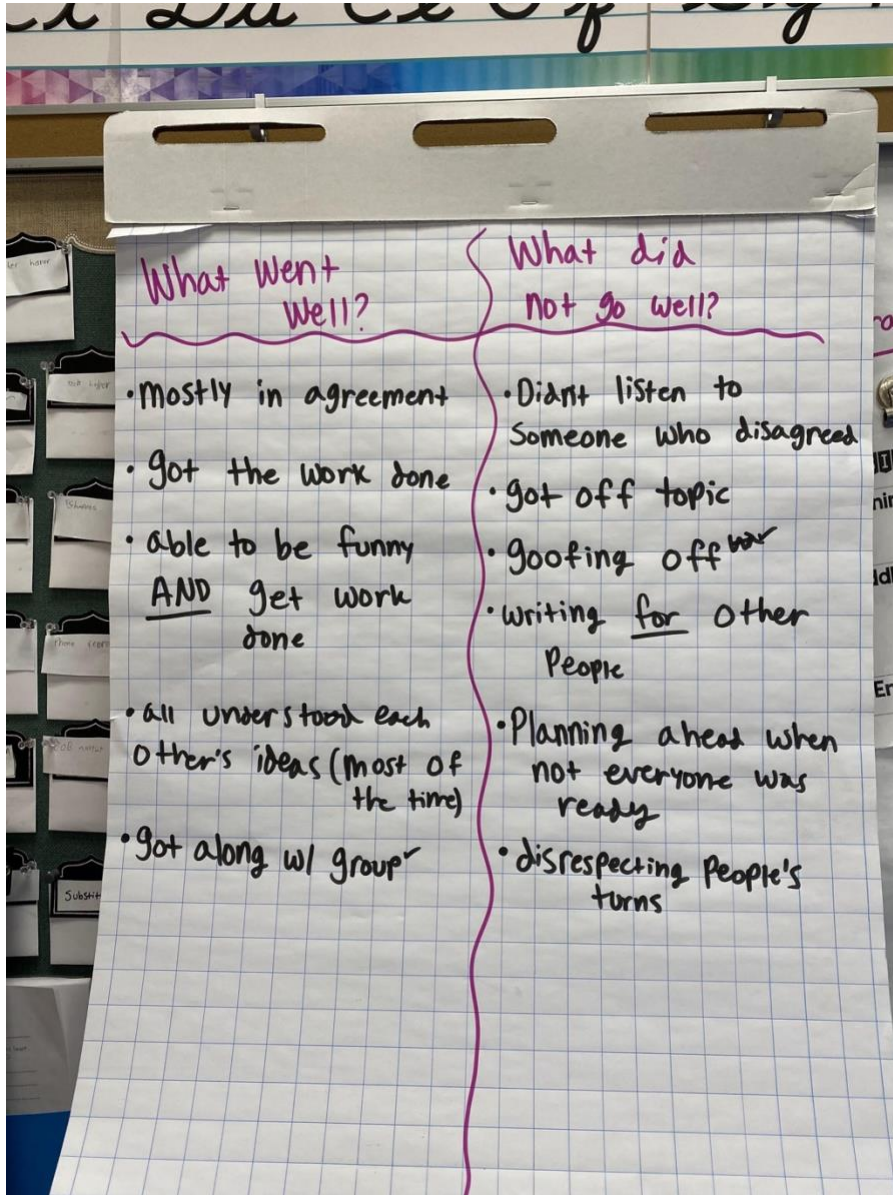 What went
Well?
• mostly in agreement
• got the work done
• able to be funny
AND get work
done
• all understood each
other's ideas (most of
the time)
• got along w/ group
What did
not go well?
• Didn't listen to
Someone who disagreed
• got off topic
• goofing off
• writing for other
People
• Planning ahead when
not everyone was
ready
• disrespecting People's
turns
Substit